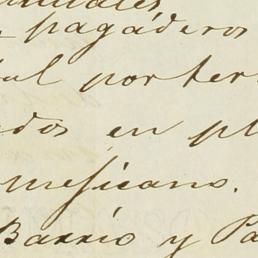 pagaderos
por ter
dos en pl
mejicano.
Barrio y Pa